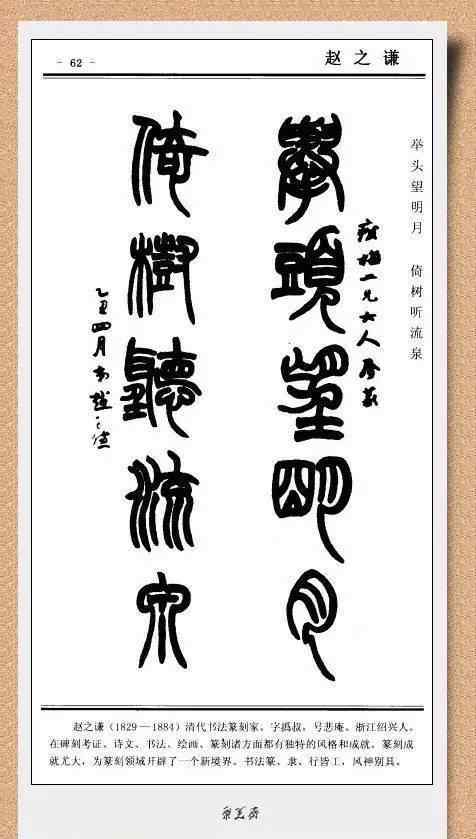 - 62 -
赵之谦
举头望明月 倚树听流泉
舉頭望明月
倚樹聽流泉
乙丑四月
赵之谦(1829—1884)清代书法篆刻家、字撝叔,号悲庵、浙江绍兴人。
在碑刻考证、诗文、书法、绘画、篆刻诸方面都有独特的风格和成就。篆刻成
就尤大,为篆刻领域开辟了一个新境界。书法篆、隶、行皆工,风神别具。